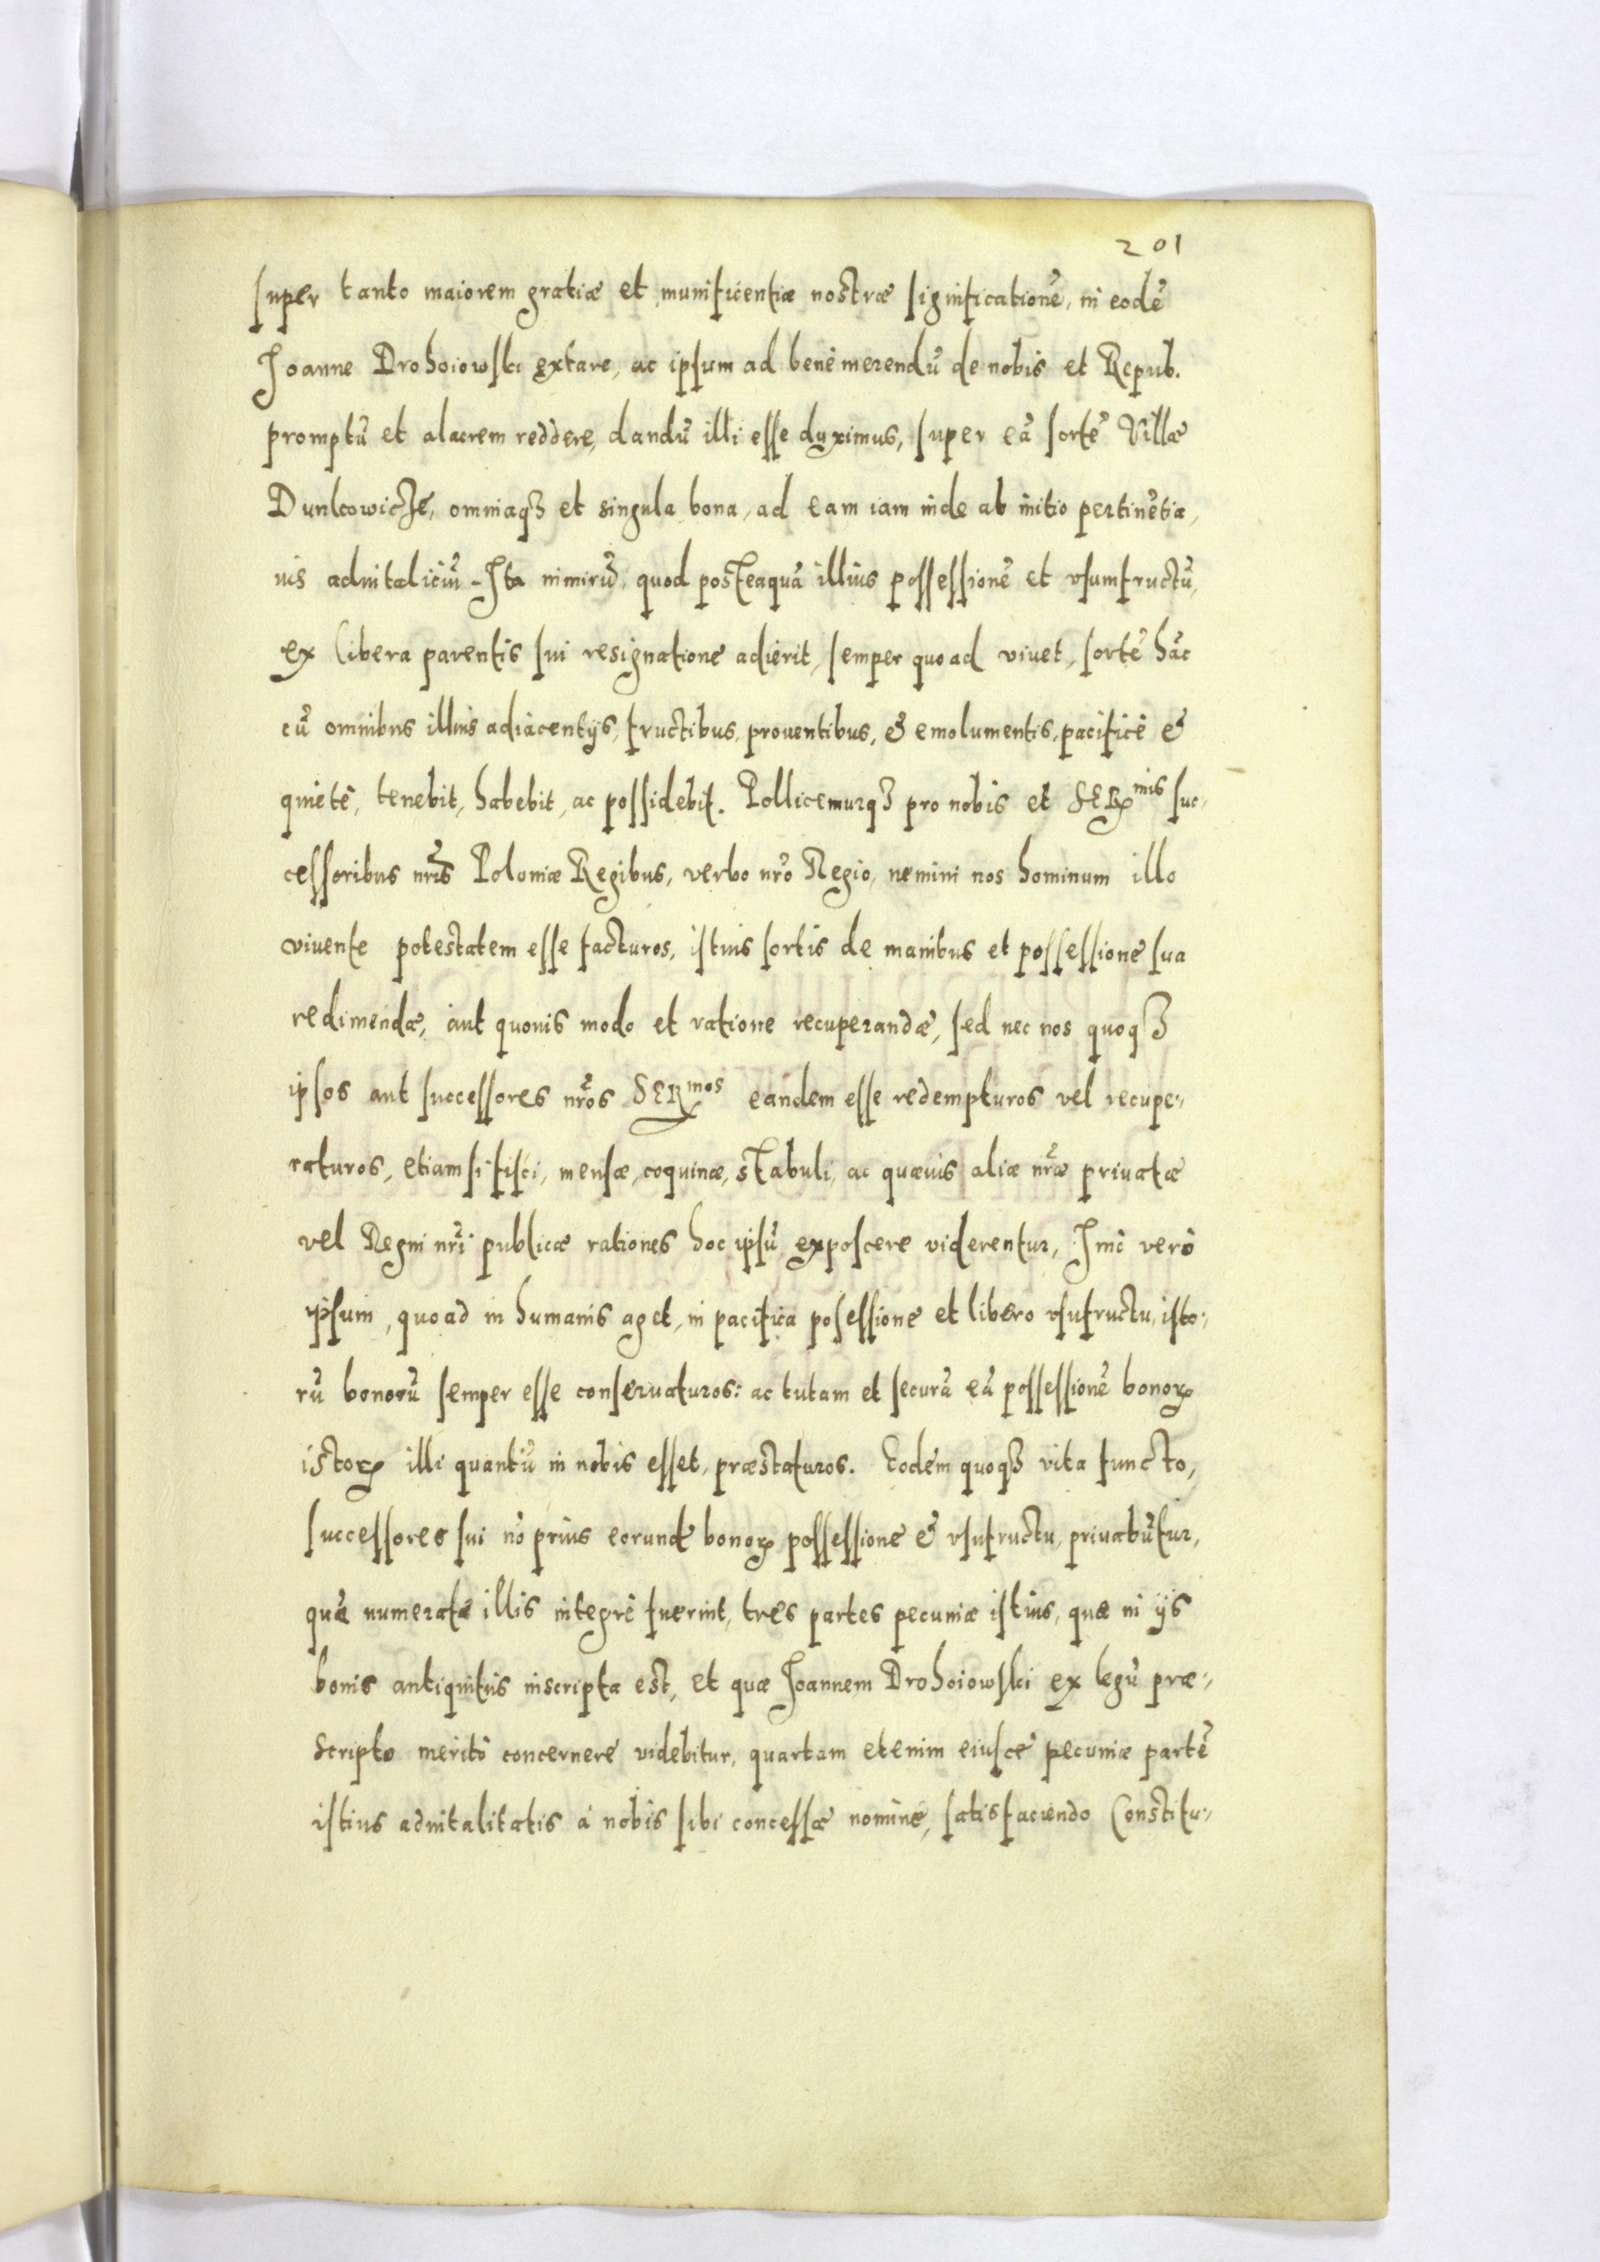 201
super tanto maiorem gratiæ et munificentiæ nostræ significationē, in eodē
Joanne Drohoiowski extare, ac ipsum ad bene merendū de nobis et Repub.
promptū et alacrem reddere, dandū illi esse dyximus, super eā sortē Villæ
Dunkowicze, omniaqȝ et singula bona, ad eam iam inde ab initio pertinētia,
ius advitaliciū - Ita nimirū, quod posteaquā illius possessionē et vsumfructū,
ex libera parentis sui resignatione adierit, semper quoad viuet, sortē hāc
cū omnibus illius adiacentijs, fructibus, prouentibus, & emolumentis, pacificè &
quietè, tenebit, habebit, ac possidebit. Pollicemurqȝ pro nobis et SERmis suc-
cessoribus nr̄is Poloniæ Regibus, verbo nr̄o Regio, nemini nos hominum illo
viuente potestatem esse facturos, istius sortis de manibus et possessione sua
redimendæ, aut quouis modo et ratione recuperandæ, sed nec nos quoqȝ
ipsos aut successores nr̄os SERmos eandem esse redempturos vel recupe-
raturos, etiamsi fisci, mensæ, coquinæ, stabuli, ac quæuis aliæ nr̄æ priuatæ
vel Regni nr̄i publicæ rationes hoc ipsū exposcere viderentur, Imò verò
ipsum, quoad in humanis aget, in pacifica posessione et libero vsufructu, isto-
rū bonorū semper esse conseruaturos: ac tutam et securā eā possessionē bonoꝝ
istoꝝ illi quantū in nobis esset, præstaturos. Eodem quoqȝ vita functo,
successores sui nō prius eorundē bonoꝝ possessione & vsufructu, priuabūtur,
quā numeratæ illis integrè fuerint, tres partes pecuniæ istius, quæ in ijs
bonis antiquitùs inscripta est, et quæ Joannem Drohoiowski ex legū præ-
scripto meritò concernere videbitur, quartam etenim eiusce pecuniæ partē
istius advitalitatis à nobis sibi concessæ nomine, satisfaciendo Constitu-